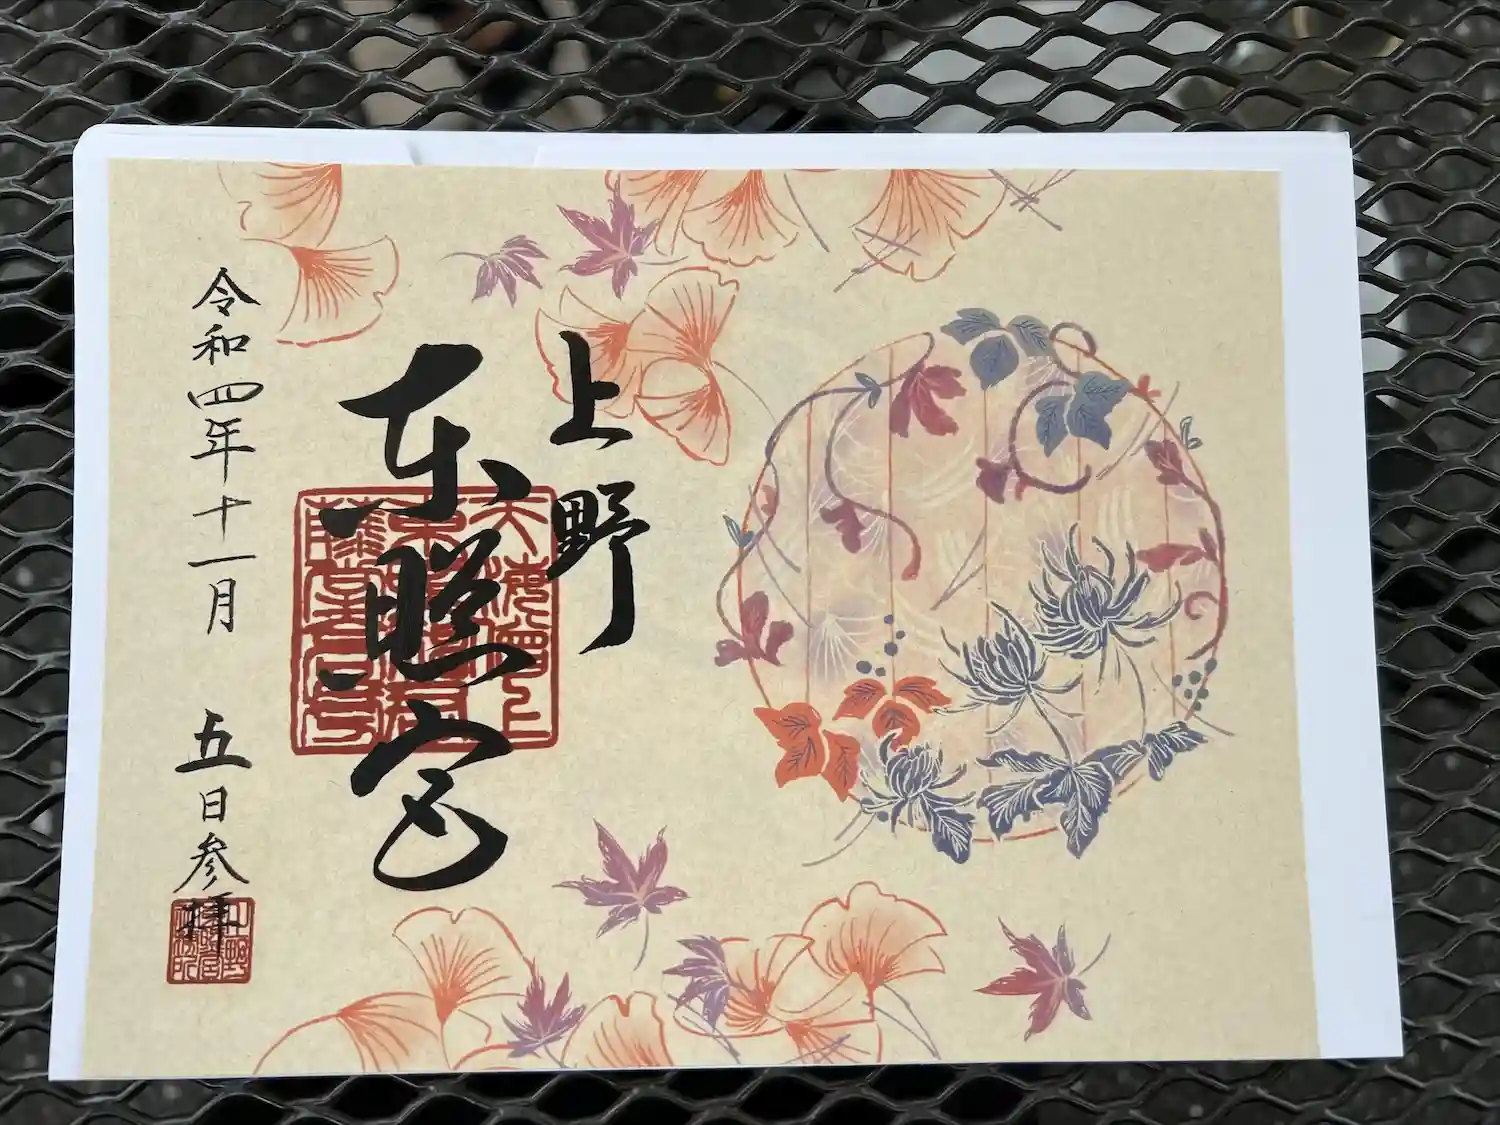 上野
東照宮
令和四年十一月 五日参拝